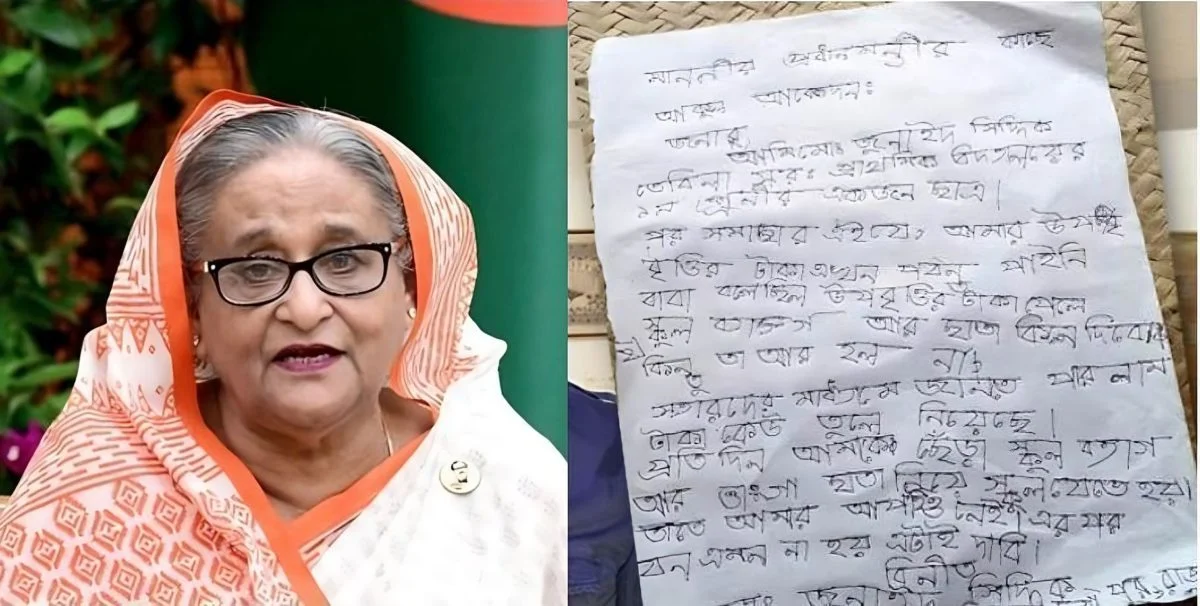 মাননীয় প্রধানমন্ত্রীর কাছে
আকুল আবেদনঃ
জনাব
আমি মোঃ জুনাইদ সিদ্দিক
তেবিলা সরঃ প্রাথমিক বিদ্যালয়ের
১ম শ্রেনীর একজন ছাত্র।
পর সমাচার এইযে, আমার উপ
বৃত্তির টাকা এখন পযন্ত পাইনি
বাবা বলেছিল উপবৃত্তির টাকা পেলে
স্কুল ব্যাগ আর ছাতা কিনে দিবে
কিন্তু তা আর হল না।
স্যারদের মাধ্যমে জানতে পারলাম
টাকা কেউ তুলে নিয়েছে।
প্রতি দিন আমাকে ছেঁড়া স্কুল ব্যাগ
আর ভাংগা ছাতা নিয়ে স্কুল যেতে হয়।
তাতে আমার আপত্তি নেই। এর পর
যেন এমন না হয় এটাই দাবি।
বিনীত
মোঃ জুনাইদ সিদ্দিক